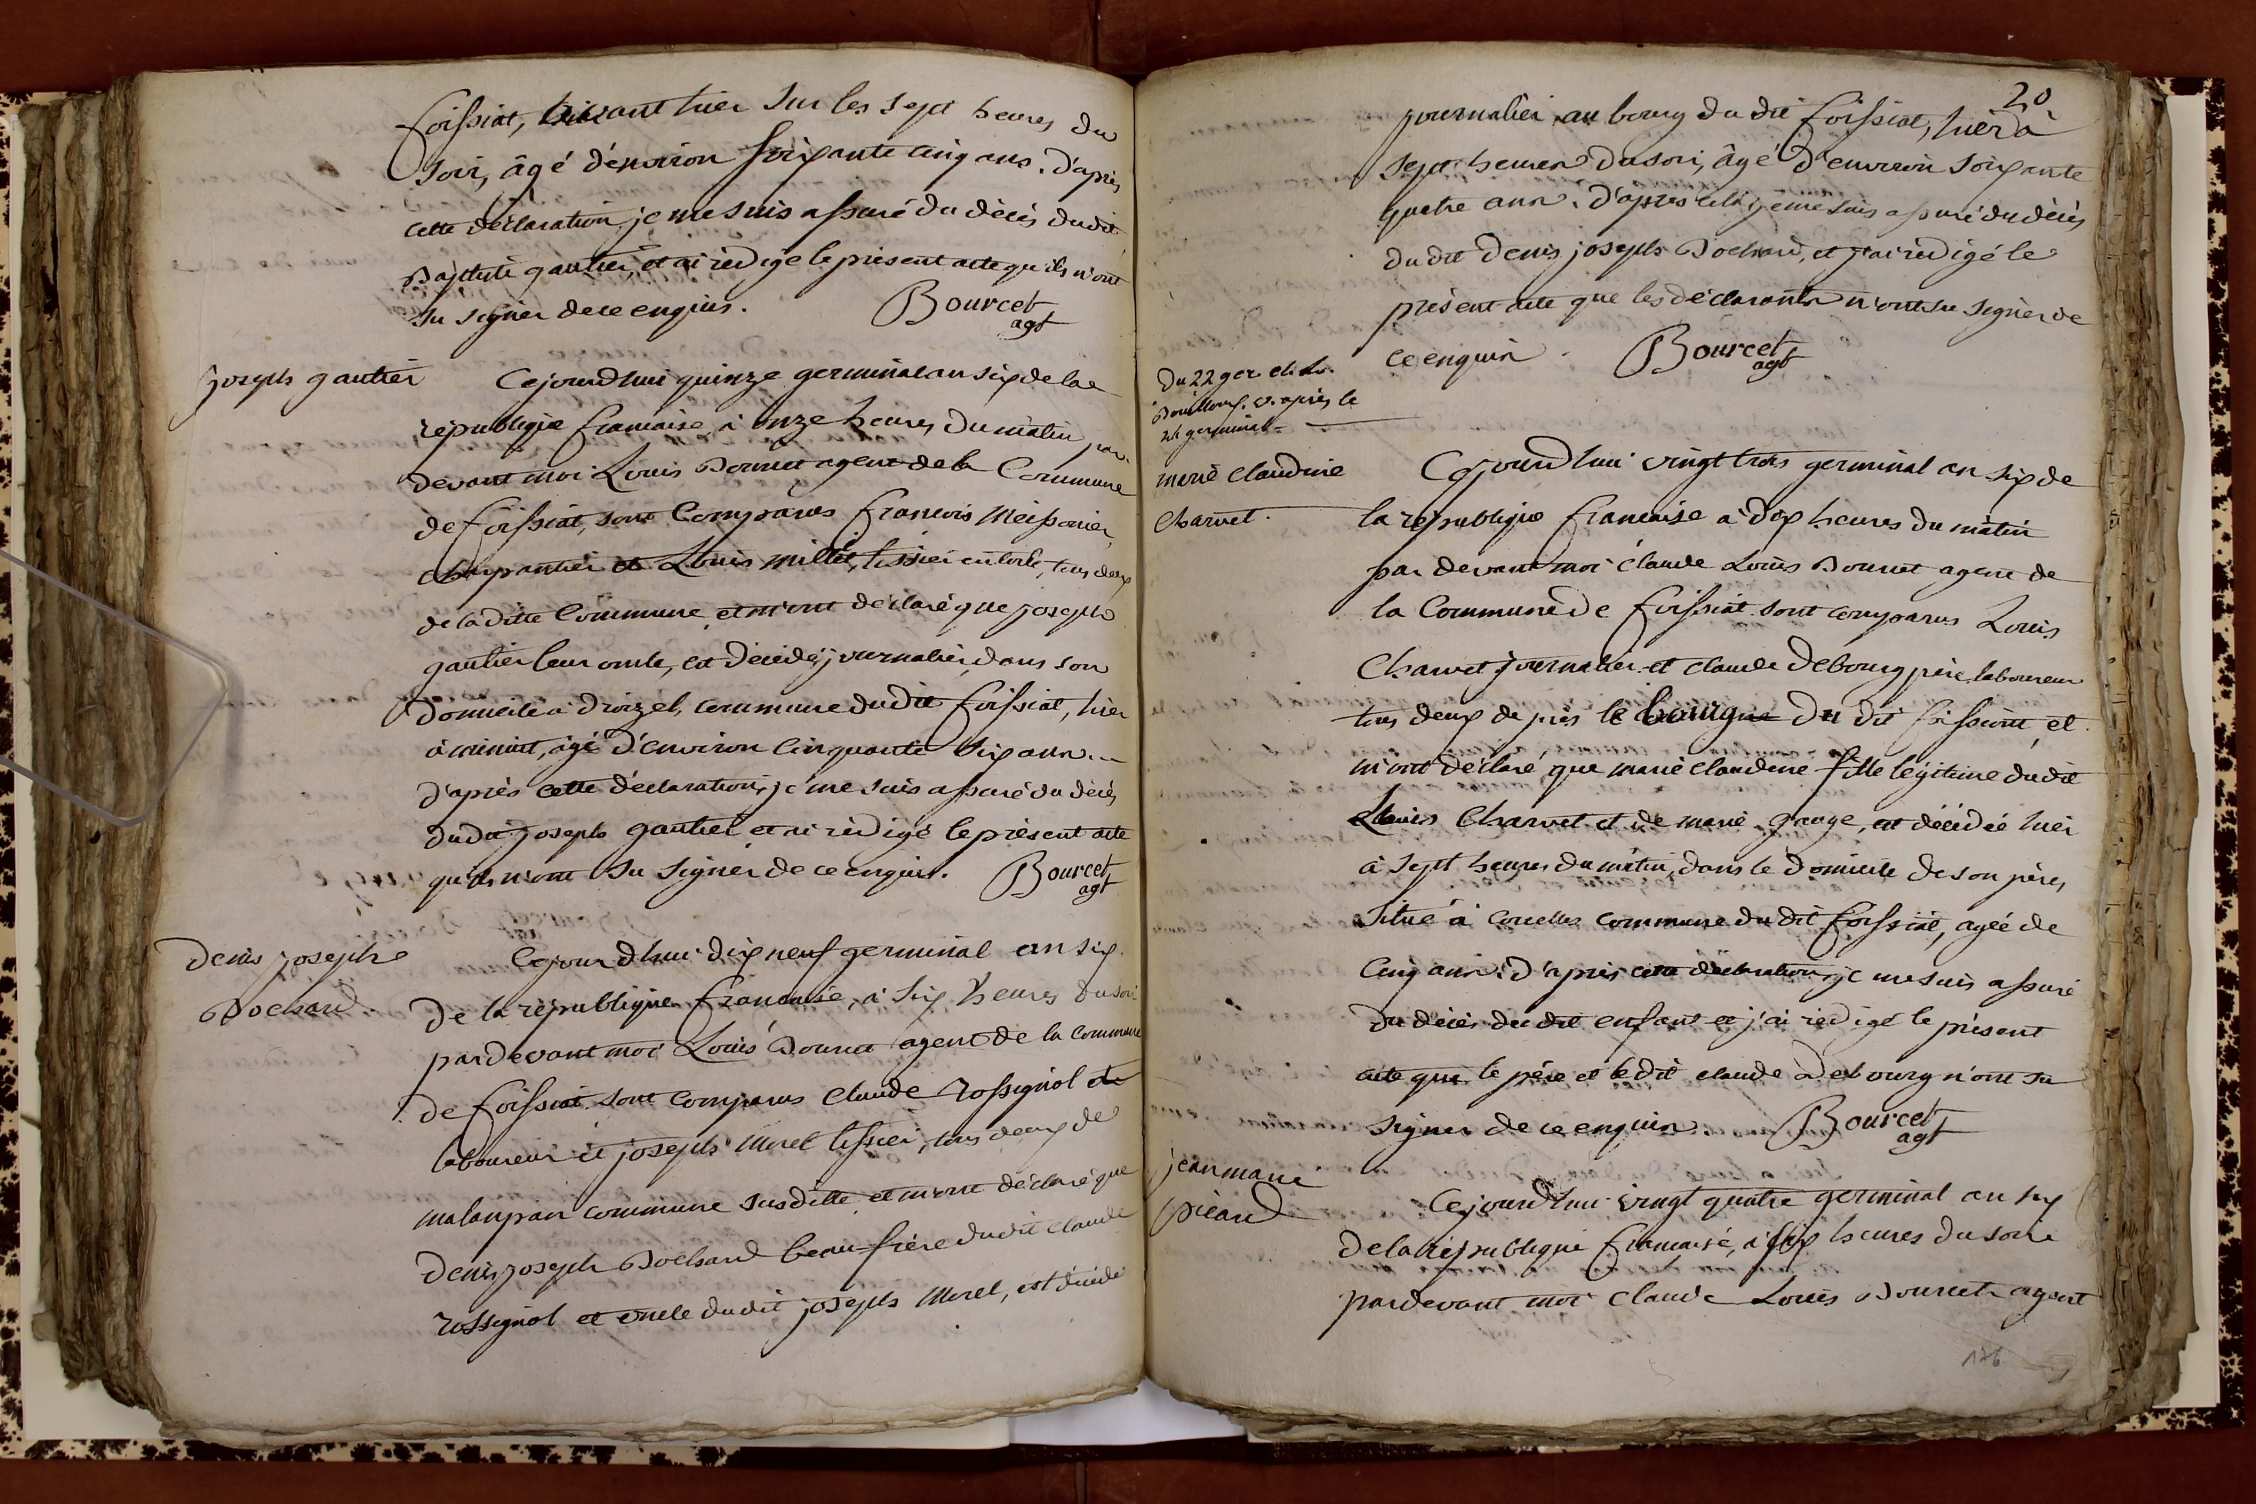 foissiat, avant hier sur les sept heures du
soir, âgé d'environ soixante cinq ans. d'après
cette déclaration, je me suis assuré du décès dudit
Baptiste gautier, et ai rédigé le présent acte qu'ils n'ont
su signer de ce enquis. Bourcet
agt
joseph gautier
Cejourd'hui quinze germinal an six de la
république francaise à onze heures du matin par
devant moi Louis Bourcet agent de la Commune
de foissiat, sont Comparus francois Meissonier
charpantier et Louis millet, tissier en toile, tous deux
de la ditte Commune et m'ont déclaré que joseph
gautier leur oncle, est décédé, journalier, dans son
domicile à commune du dit foissiat, hier
à minuit, âgé d'environ Cinquante six ans.
d'après cette déclaration, je me suis assuré du décès
dudit joseph gautier et ai rédigé le présent acte
qu'ils n'ont su signer de ce enquis. Bourcet
agt
denis joseph
Bochard
Cejourd'hui dix neuf germinal an six
de la république francaise, à six heures du soir
pardevant moi Louis Bourcet agent de la commune
de foissiat sont comparus claude rossignol
laboureur et joseph morel tissier, tous deux de
malanpair commune susditte et m'ont déclaré que
denis joseph Bochard beau-frère dudit claude
rossignol et oncle dudit joseph morel, est décédé
20
journalier au bourg du dit foissiat, hier à
sept heures du soir, âgé d'environ soixante
quatre ans. d'après cela je me suis assuré du décès
du dit denis joseph Bochard, et j'ai rédigé le
présent acte que les déclarants n'ont su signer de
ce enquis. Bourcet
agt
du 22 ger
v. après le
24 germinal
marie claudine
Charvet.
Cejourd'hui vingt trois germinal an six de
la république francaise à dix heures du matin
par devant moi claude Louis Bourcet agent de
la Commune de foissiat sont comparus Louis
Charvet journalier et claude debourg père, laboureur
tous deux de près le bourg du dit foissiat, et
m'ont déclaré, que marie claudine fille légitime dudit
Louis Charvet et de marie gauge, est décédée hier
à sept heures du matin, dans le domicile de son père,
situé à corcelles commune du dit foissiat, agée de
Cinq ans. d'après cette déclaration, je me suis assuré
du décès du dit enfant et j'ai rédigé le présent
acte que le père et le dit claude debourg n'ont su
signer de ce enquis. Bourcet
agt
jean marie
picard
Cejourd'hui vingt quatre germinal an six
de la république francaise, à six heures du soir
pardevant moi claude Louis Bourcet agent
176